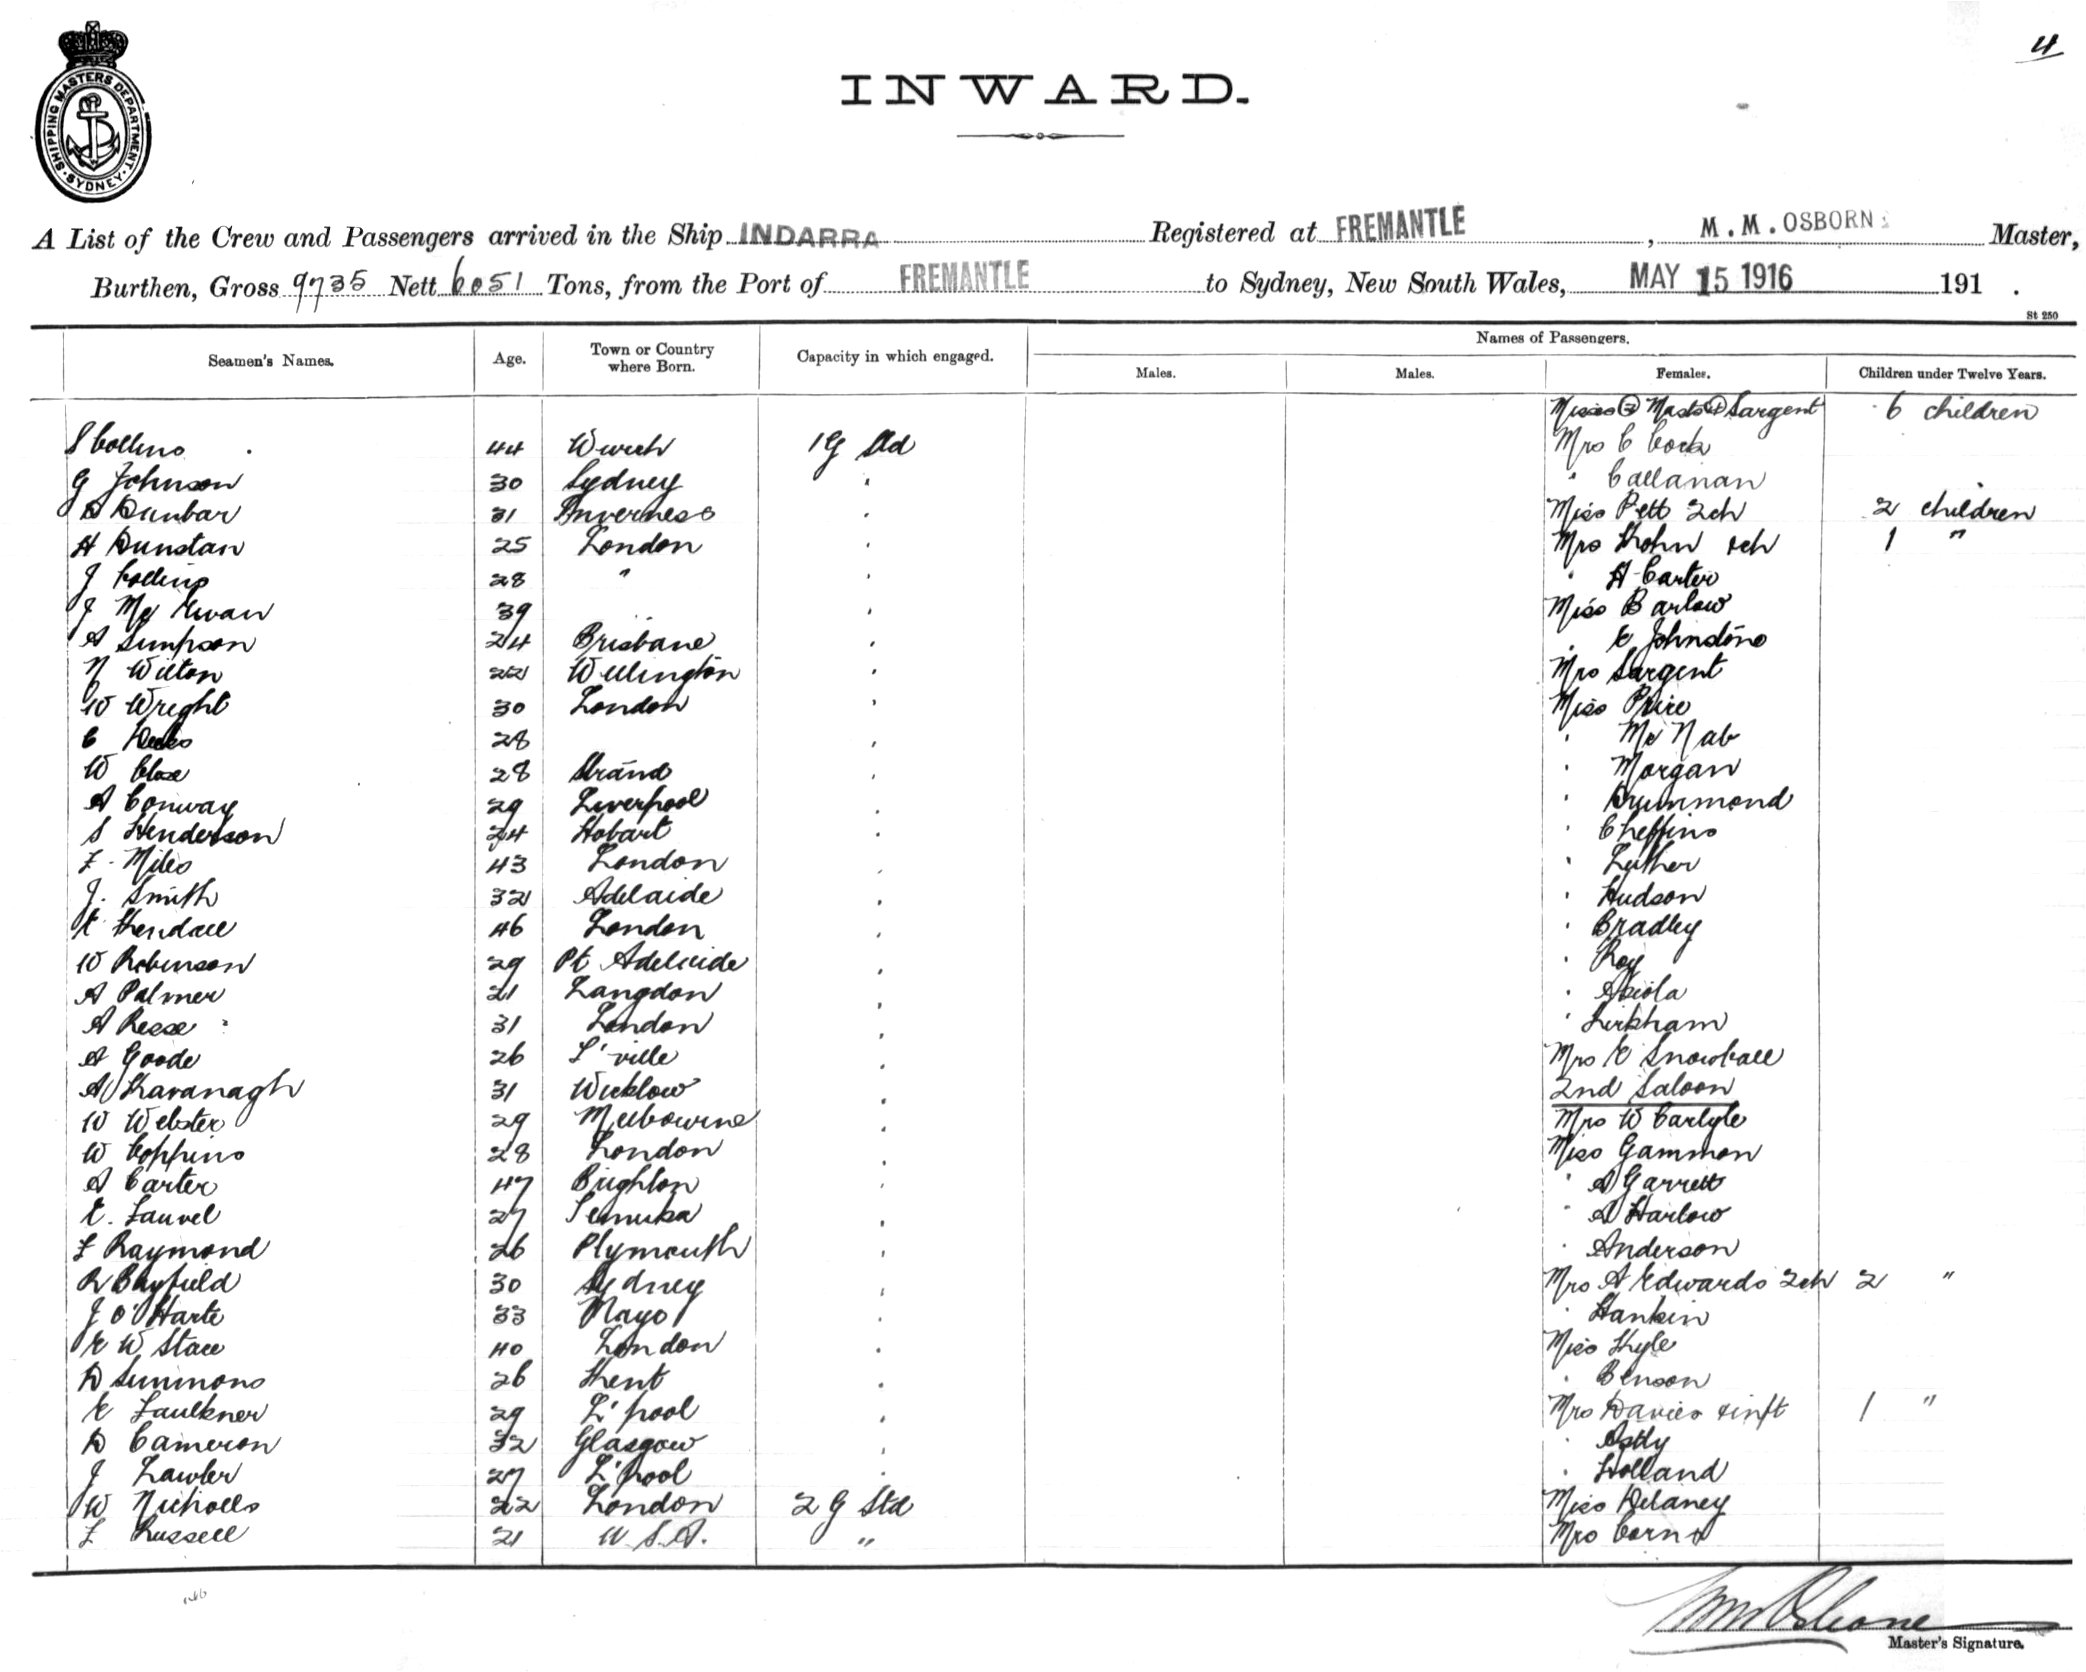 4
SHIPPING MASTERS DEPARTMENT. SYDNEY.
INWARD.
A List of the Crew and Passengers arrived in the Ship INDARRA Registered at FREMANTLE, M. M. OSBORNE Master,
Burthen, Gross 9735 Nett 6051 Tons, from the Port of FREMANTLE to Sydney, New South Wales, MAY 15 1916 191 .
St 250
Names of Passengers.
Seamen's Names. Age. Town or Country where Born. Capacity in which engaged. Males. Males. Females. Children under Twelve Years.
Misses 3 Masts Sargent 6 children
S Collins 44 1 G Std Mrs C Cock
G Johnson 30 Sydney " " Callanan
D Dunbar 31 Inverness " Miss Pett 2ch 2 children
H Dunstan 25 London " Mrs Kohn &ch 1 "
J Collins 28 " " " H Carter
J Mc Ewan 39 " " Miss Barlow
A Simpson 24 Brisbane " " E Johnstone
N Wilton 22 Wellington " Mrs Sargent
W Wright 30 London " Miss Price
C 28 " " Mc Nab
W Close 28 Strand " " Morgan
A Conway 29 Liverpool " " Drummond
S Henderson 24 Hobart " " Cheffins
F. Miles 43 London " " Luther
J. Smith 32 Adelaide " " Hudson
E Kendall 46 London " " Bradley
W Robinson 29 Pt Adelaide " " Roy
A Palmer 21 Langdon "
A Reese 31 London " " Kirkham
A Goode 26 L'ville " Mrs E Snowball
A Kavanagh 31 Wicklow " 2nd Saloon
W Webster 29 Melbourne " Mrs W Carlyle
W Coppins 28 London " Miss Gammon
A Carter 47 Brighton " " A Garrett
E. Fauvel 27 Temuka " " A Harlow
F Raymond 26 Plymouth " " Anderson
R Bayfield 30 Sydney " Mrs A Edwards 2ch 2 "
J O'Harte 33 Mayo " " Hankin
E W Stace 40 London " Miss Kyle
D Simmons 26 Kent " " Benson
E Faulkner 29 L'pool " Mrs Davies & inft 1 "
D Cameron 32 Glasgow " " Astly
J Lawler 27 L'pool " " Holland
W Nicholls 22 London 2 G Std Miss Delaney
F Russell 21 U.S.A. " Mrs
Master's Signature.